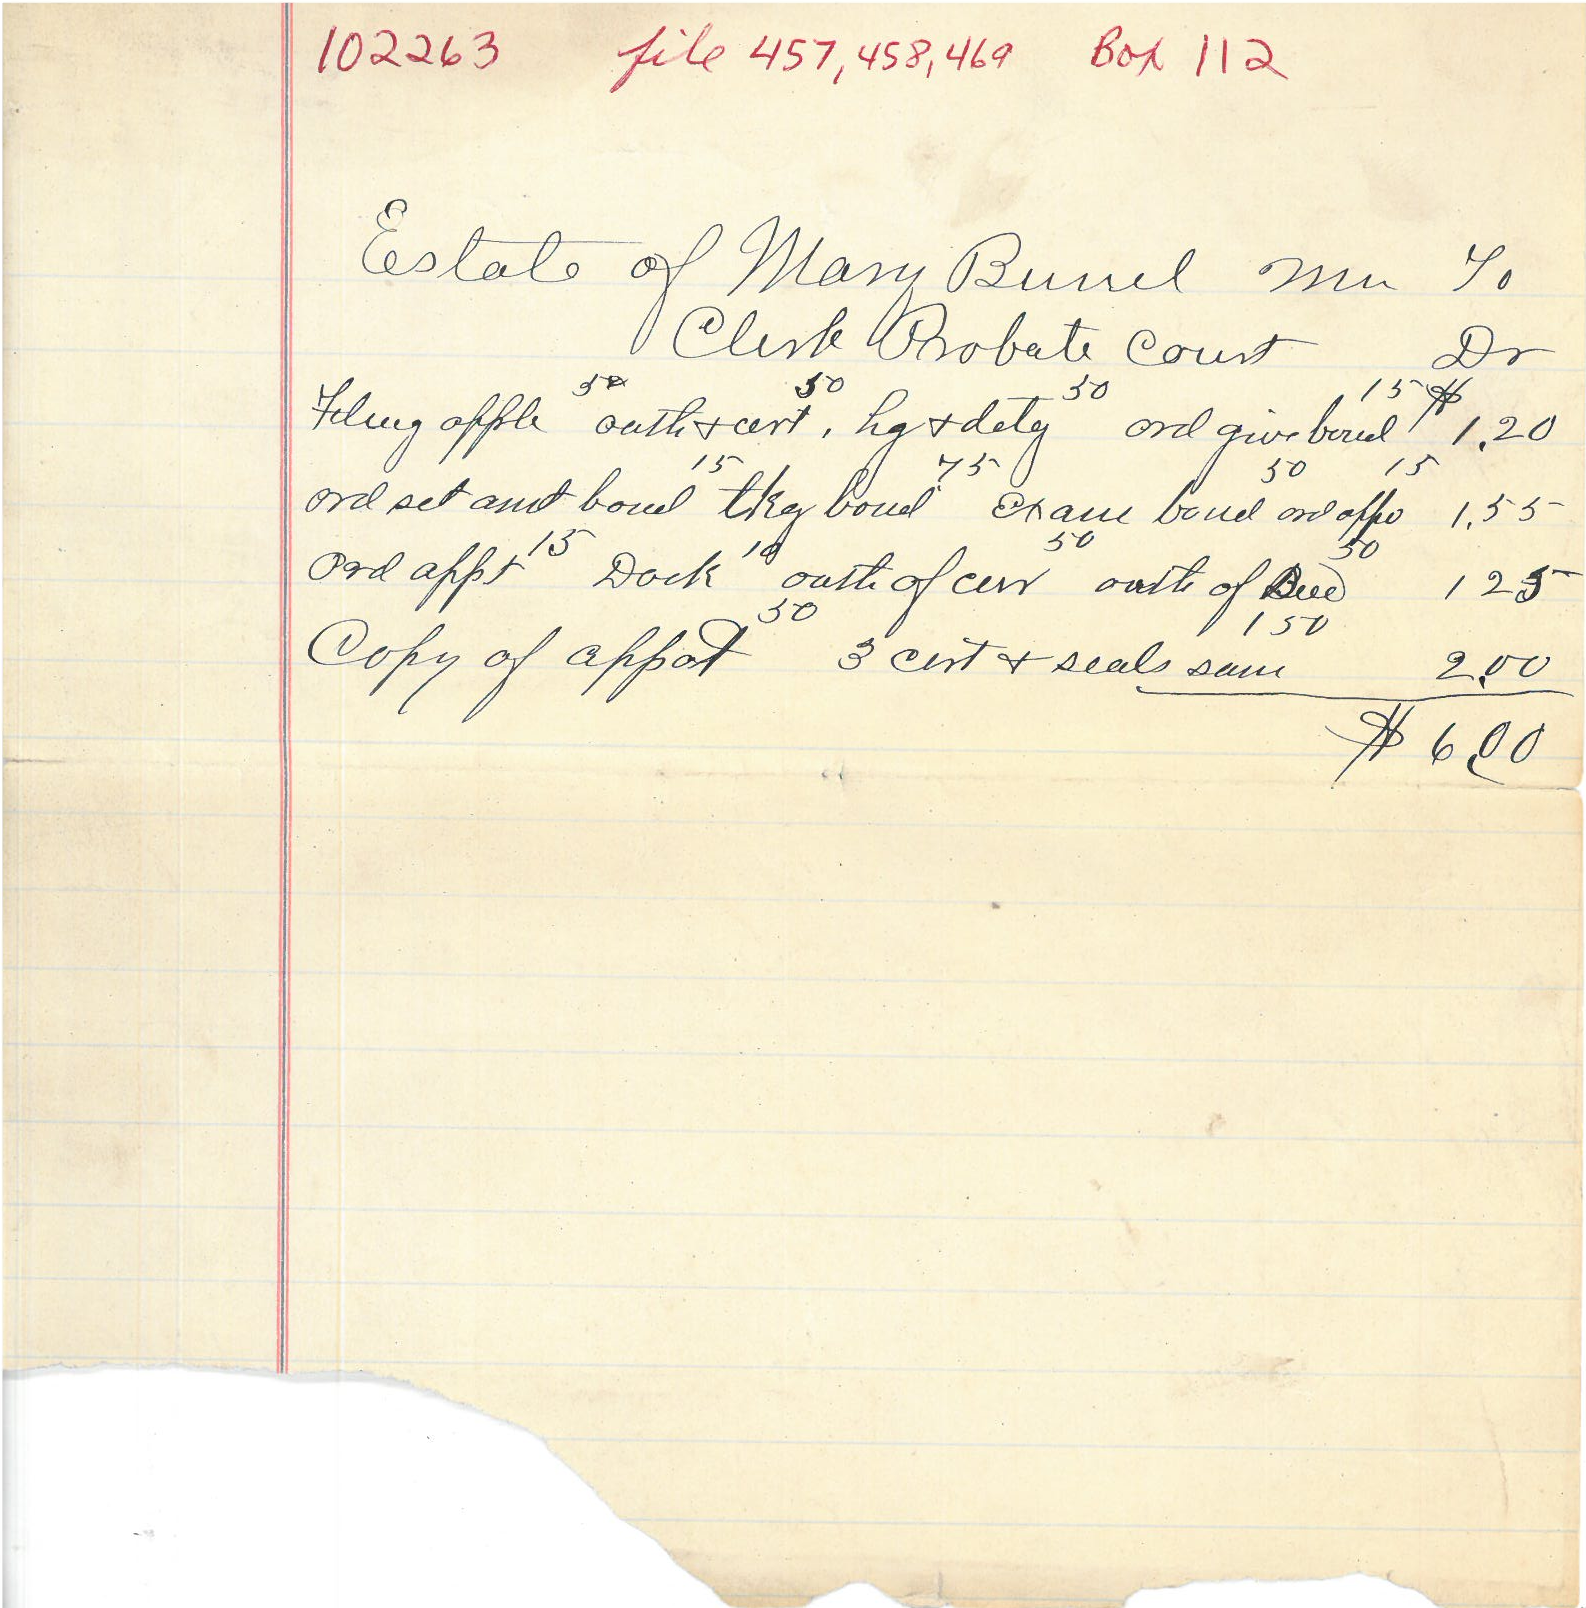 102263 file 457,458,469 Box 112
Estate of Mary Burrel To
Clerk Probate Court Dr
50 50 15 $
Filing apple oath & cert, hg & detg ord give bond 1.20
15 75 50 15
ord set amt bond tkg bond Exam bond ord appo 1.55
15 10 50 50
Ord appt Dock oath of oath of 1 25
50 1 50
Copy of appot 3 cert & seals sam 2.00
$ 6.00